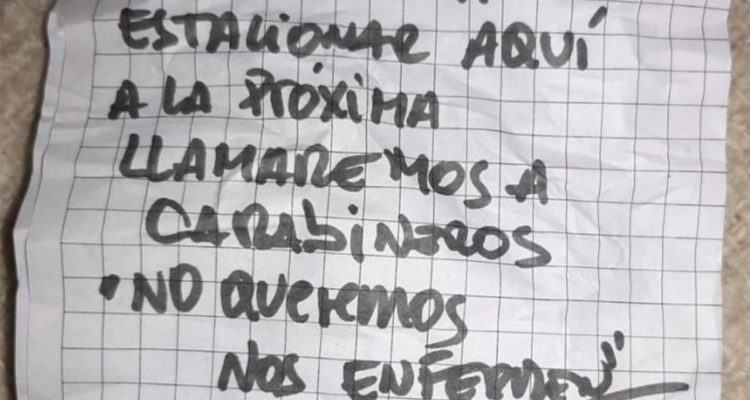 ESTACIONAR AQUÍ
A LA PRÓXIMA
LLAMAREMOS A
CARABINEROS
• NO QUEREMOS
NOS ENFERMEN"